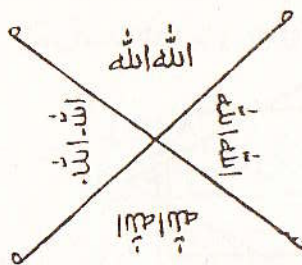 الله الله
الله الله
الله الله
الله الله